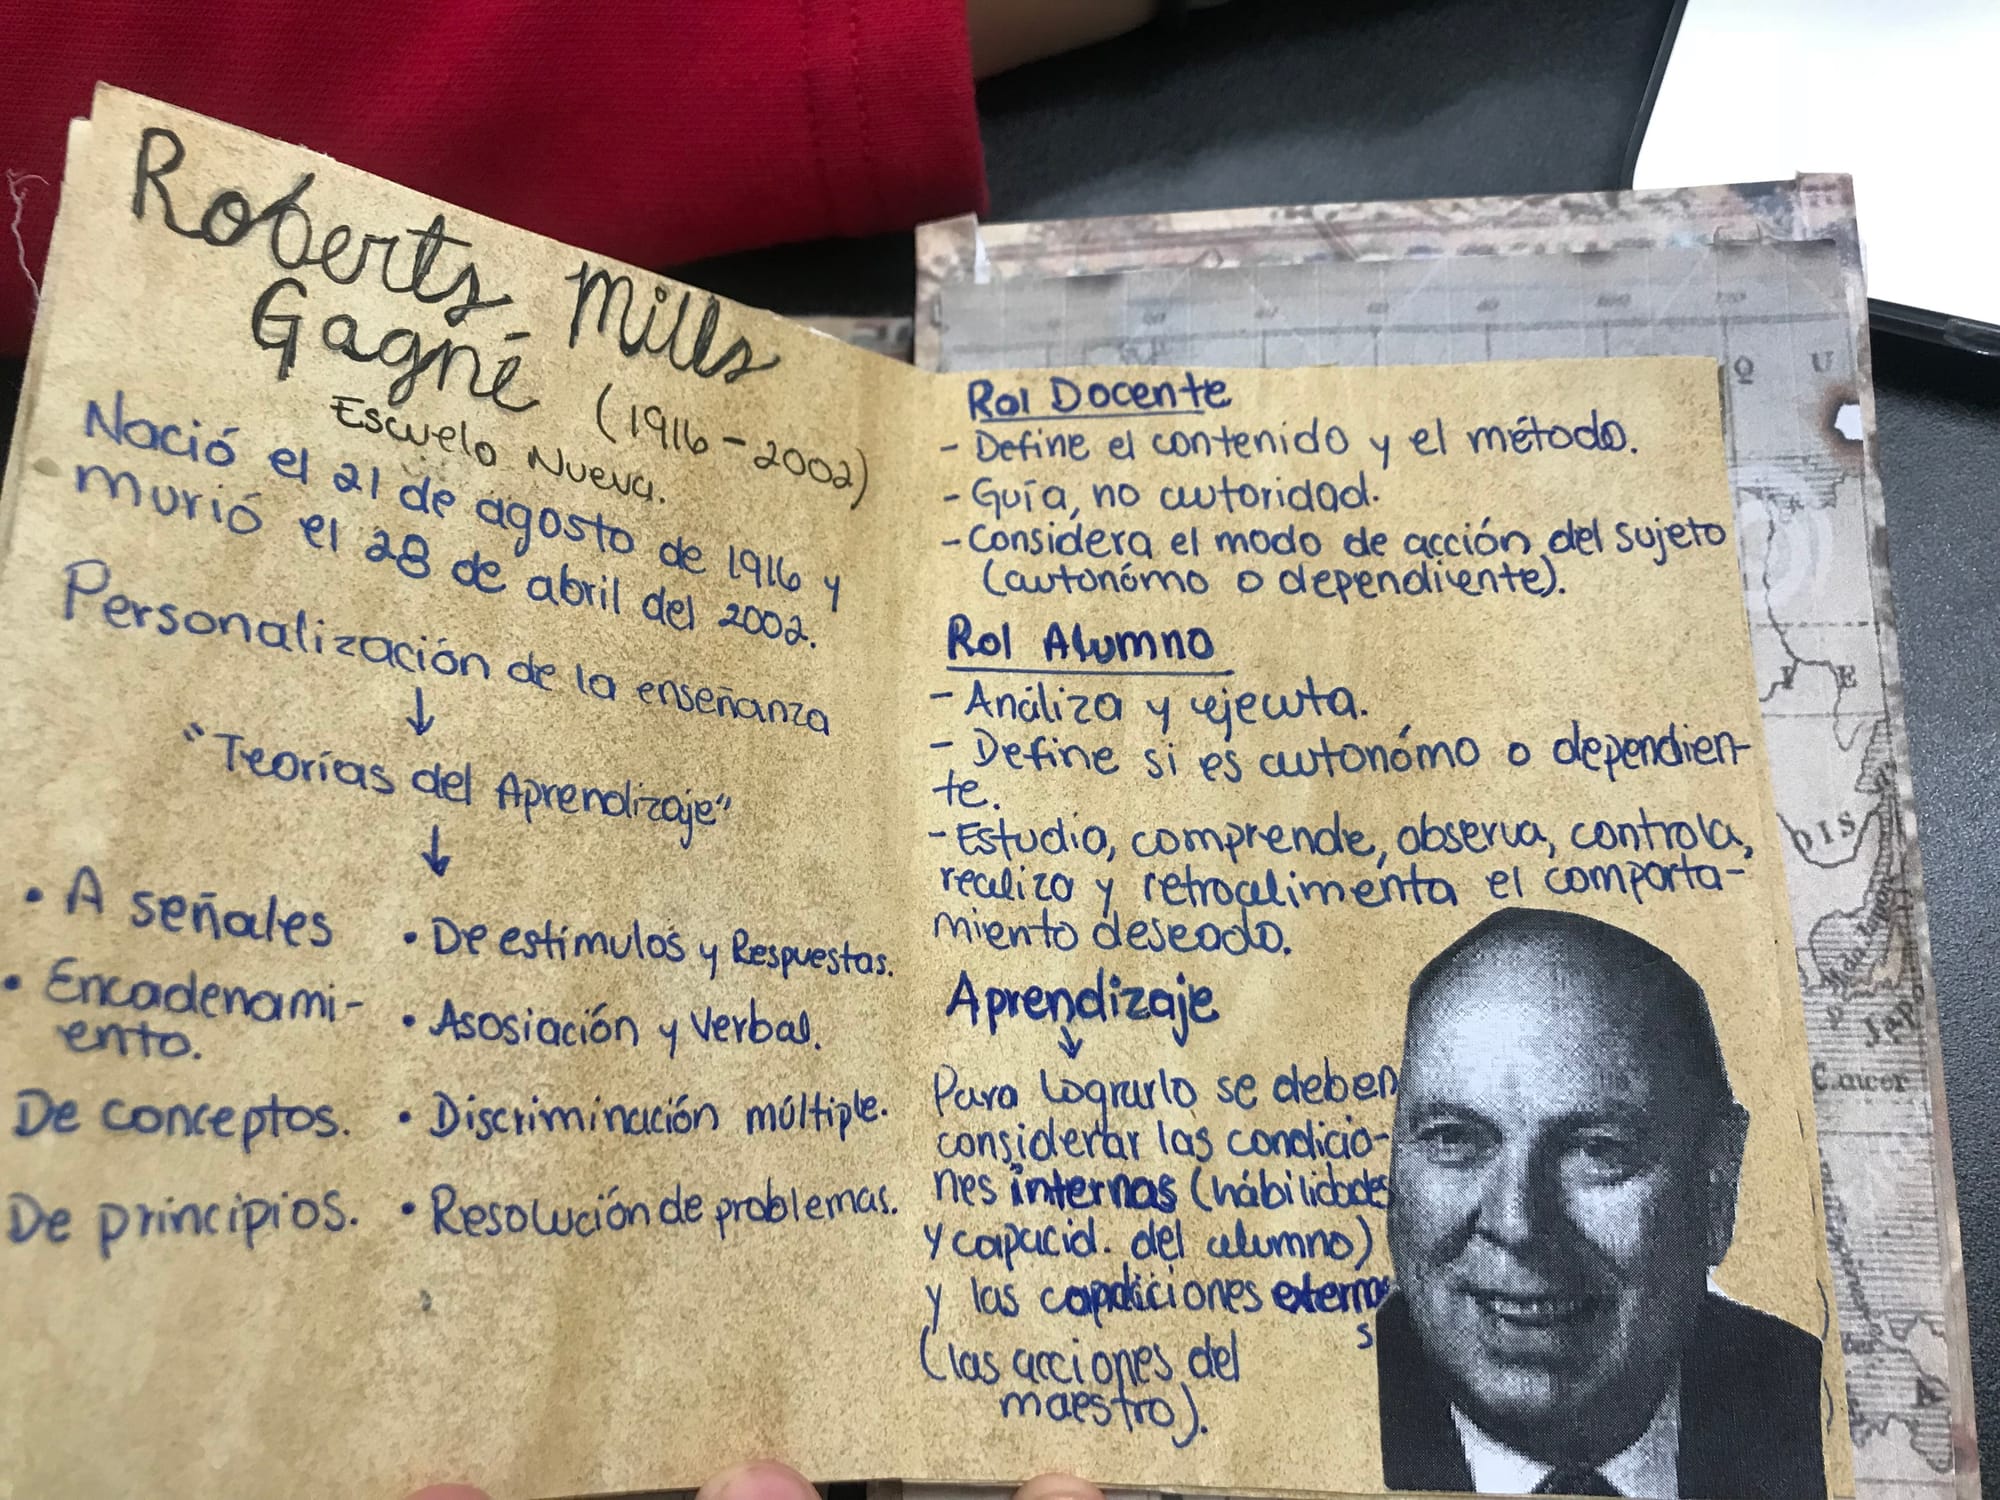 Roberts Mills
Gagné (1916-2002)
Escuela Nueva.
Nació el 21 de agosto de 1916 y
murió el 28 de abril del 2002.
Personalización de la enseñanza
↓
"Teorías del Aprendizaje"
↓
• A señales
• Encadenami-
ento.
De conceptos.
De principios.
• De estímulos y Respuestas.
• Asosiación y Verbal.
• Discriminación múltiple.
• Resolución de problemas.
Rol Docente
- Define el contenido y el método.
- Guía, no autoridad.
- Considera el modo de acción del sujeto
(autonómo o dependiente).
Rol Alumno
- Análiza y ejecuta.
- Define si es autonómo o dependien-
te.
- Estudia, comprende, observa, controla,
realiza y retroalimenta el comporta-
miento deseado.
Aprendizaje
↓
Para lograrlo se deben
considerar las condicio-
nes internas (hábilidades
y capacid. del alumno)
y las condiciones externa
s
(las acciones del
maestro).
O U
F E
DIS
Cancer